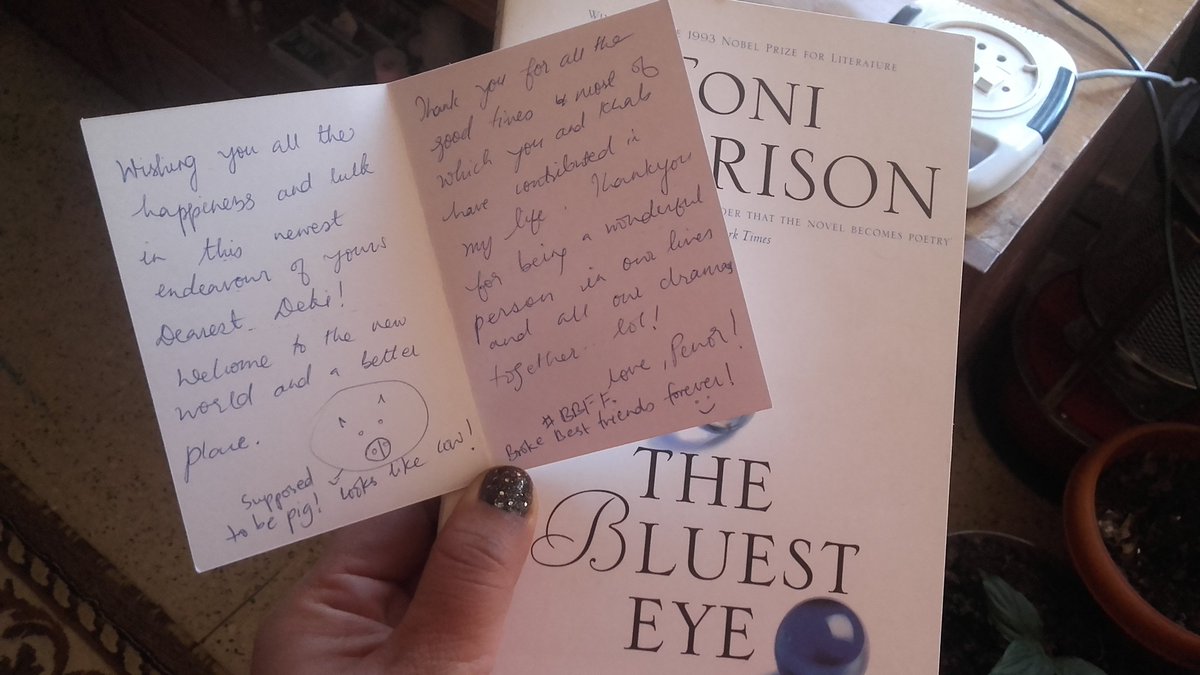 Wishing you all the
happiness and lulk
in this newest
endeavour of yours
Dearest Deki!
Welcome to the new
world and a better
place.
Supposed
to be pig! looks like cow!
Thank you for all the
good times & most of
which you and Khab
have contributed in
my life. Thankyou
for being a wonderful
person in our lives
and all our dramas
together... lol!
Love, Penor!
#BBFF.
Broke Best friends forever!
1993 NOBEL PRIZE FOR LITERATURE
TONI
RRISON
THAT THE NOVEL BECOMES POETRY
rk Times
THE
BLUEST
EYE